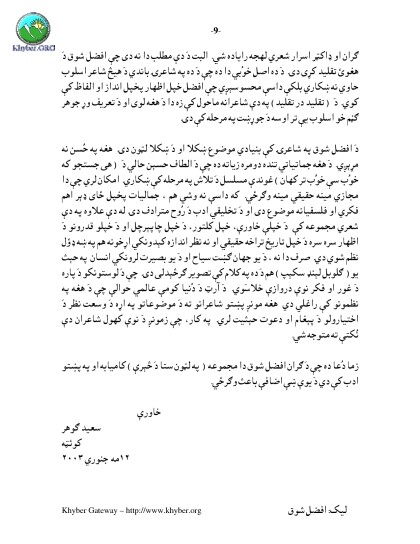 Khyber.ORG
-9-
ګران او ډاکټر اسرار شعري لهجه رايادہ شي. البت دَ دې مطلب دا نه دی چې افضل شوق دَ
هغوئ تقليد کړی دی. دَ دہ اصل خوُبي دا دہ چې دَ دہ په شاعرۍ باندې دَ هيڅ شاعر اسلوب
حاوي نه ښکاري بلکې داسې محسوسېږي چې افضل خپل اظهار پخپل انداز او الفاظ کې
کوي. دَ ( تقليد در تقليد ) په دې شاعرانه ماحول کې زہ دا دَ هغه لوی او دَ تعريف وړ جوهر
ګڼم خو اسلوب يې تر اوسه دَ جوړښت په مرحله کې دی.
دَ افضل شوق په شاعرۍ کې بنيادي موضوع ښکلا او دَ ښکلا لټون دی. هغه په حُسن نه
مړېږي. دَ هغه جمالياتي تندہ دومرہ زياته دہ چې دَ الطاف حسين حالي دَ ( هی جستجو که
خوُب سې خوُب تر کهان ) غوندې مسلسل دَ تلاش په مرحله کې ښکاري. امکان لري چې دا
مجازي مينه حقيقي مينه وګرځي. که داسې نه وشي هم، جماليات پخپل ځای ډېر اهم
فکري او فلسفيانه موضوع دی او دَ تخليقي ادب دَ رُوح مترادف دی. له دې علاوہ په دې
شعري مجموعه کې دَ خپلې خاورې، خپل کلتور، دَ خپل چاپېرچل او دَ خپلو قدرونو دَ
اظهار سرہ سرہ دَ خپل تاريخ تراخه حقيقي او نه نظر اندازہ کېدونکي اړخونه هم په ښه ډوُل
نظم شوي دي. صرف دا نه، دَ يو جهان ګښت سياح او دَ يو بصيرت لرونکي انسان په حيث
يو ( ګلوبل لېنډ سکېپ ) هم دَ دہ په کلام کې تصوير ګرځېدلی دی. چې دَ لوستونکو دَ پارہ
دَ غور او فکر نوې دروازې خلاسَوي. دَ آرټ دَ دُنيا کومې عالمي حوالې چې دَ هغه په
نظمونو کې راغلي دي. هغه مونږ پښتو شاعرانو ته دَ موضوعاتو په اړہ دَ وسعت نظر دَ
اختيارولو دَ پېغام او دعوت حيثيت لري. په کار، چې زمونږ دَ نوي کهول شاعران دې
نُکتې ته متوجه شي.
زما دُعا دہ چې دَ ګران افضل شوق دا مجموعه ( په لټون ستا دَ څېرې ) کاميابه او په پښتو
ادب کې دې دَ يوې ښې اضافې باعث وګرځي.
خاورې
سعيد ګوهر
کوئټه
۱۲مه جنوري ۲۰۰۳
ليک: افضل شوق
Khyber Gateway – http://www.khyber.org